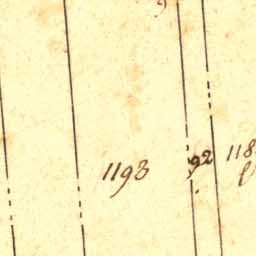 1193 92 118